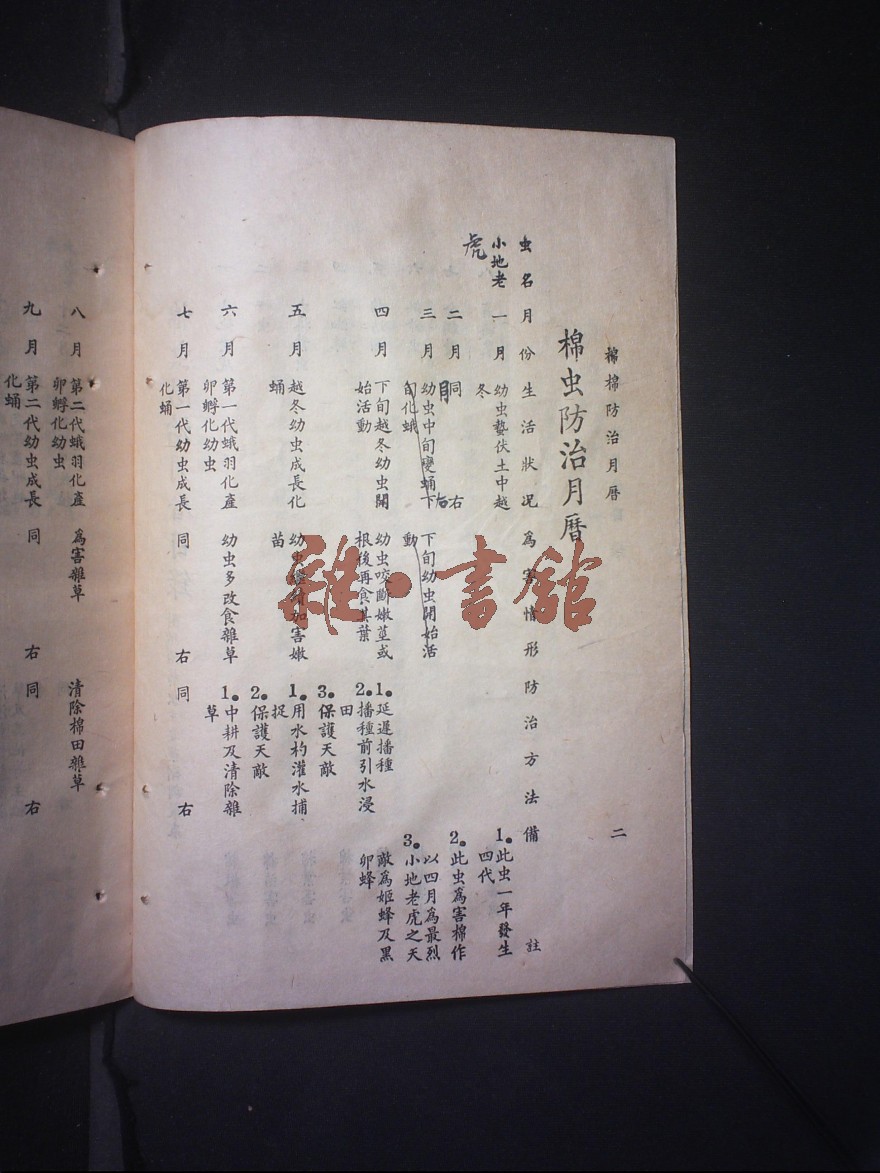 棉棉防治月曆
二
棉虫防治月曆
虫名 月份 生活狀況 為害情形 防治方法 備註
小地老
虎
一月
幼虫蟄伏土中越
冬
1.此虫一年發生
四代
二月
同 右
2.此虫為害棉作
以四月為最烈
三月
幼虫中旬變蛹下
旬化蛾
下旬幼虫開始活
動
3.小地老虎之天
敵為姬蜂及黑
卵蜂
四月
下旬越冬幼虫開
始活動
幼虫咬斷嫩莖或
根後再食其葉
1.延遲播種
2.播種前引水浸
田
3.保護天敵
五月
越冬幼虫成長化
蛹
加害嫩
苗
1.用水杓灌水捕
捉
2.保護天敵
六月
第一代蛾羽化產
卵孵化幼虫
幼虫多改食雜草
1.中耕及清除雜
草
七月
第一代幼虫成長
化蛹
同 右
同 右
八月
第二代蛾羽化產
卵孵化幼虫
為害雜草
清除棉田雜草
九月
第二代幼虫成長
化蛹
同 右
同 右
雜·書館